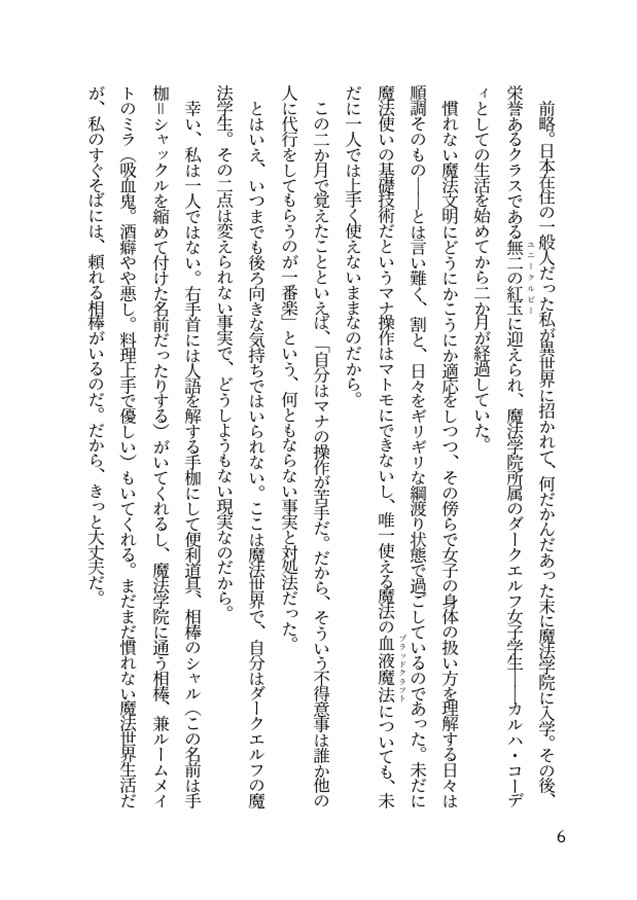 前略。日本在住の一般人だった私が異世界に招かれて、何だかんだあった末に魔法学院に入学。その後、
栄誉あるクラスである無二の紅玉に迎えられ、魔法学院所属のダークエルフ女子学生――カルハ・コーデ
ユニークルビー
ィとしての生活を始めてから二か月が経過していた。
慣れない魔法文明にどうにかこうにか適応をしつつ、その傍らで女子の身体の扱い方を理解する日々は
順調そのもの――とは言い難く、割と、日々をギリギリな綱渡り状態で過ごしているのであった。未だに
魔法使いの基礎技術だというマナ操作はマトモにできないし、唯一使える魔法の血液魔法についても、未
ブラッドクラフト
だに一人では上手く使えないままなのだから。
この二か月で覚えたことといえば、「自分はマナの操作が苦手だ。だから、そういう不得意事は誰か他の
人に代行をしてもらうのが一番楽」という、何ともならない事実と対処法だった。
とはいえ、いつまでも後ろ向きな気持ちではいられない。ここは魔法世界で、自分はダークエルフの魔
法学生。その二点は変えられない事実で、どうしようもない現実なのだから。
幸い、私は一人ではない。右手首には人語を解する手枷にして便利道具、相棒のシャル（この名前は手
枷＝シャックルを縮めて付けた名前だったりする）がいてくれるし、魔法学院に通う相棒、兼ルームメイ
トのミラ（吸血鬼。酒癖やや悪し。料理上手で優しい）もいてくれる。まだまだ慣れない魔法世界生活だ
が、私のすぐそばには、頼れる相棒がいるのだ。だから、きっと大丈夫だ。
6